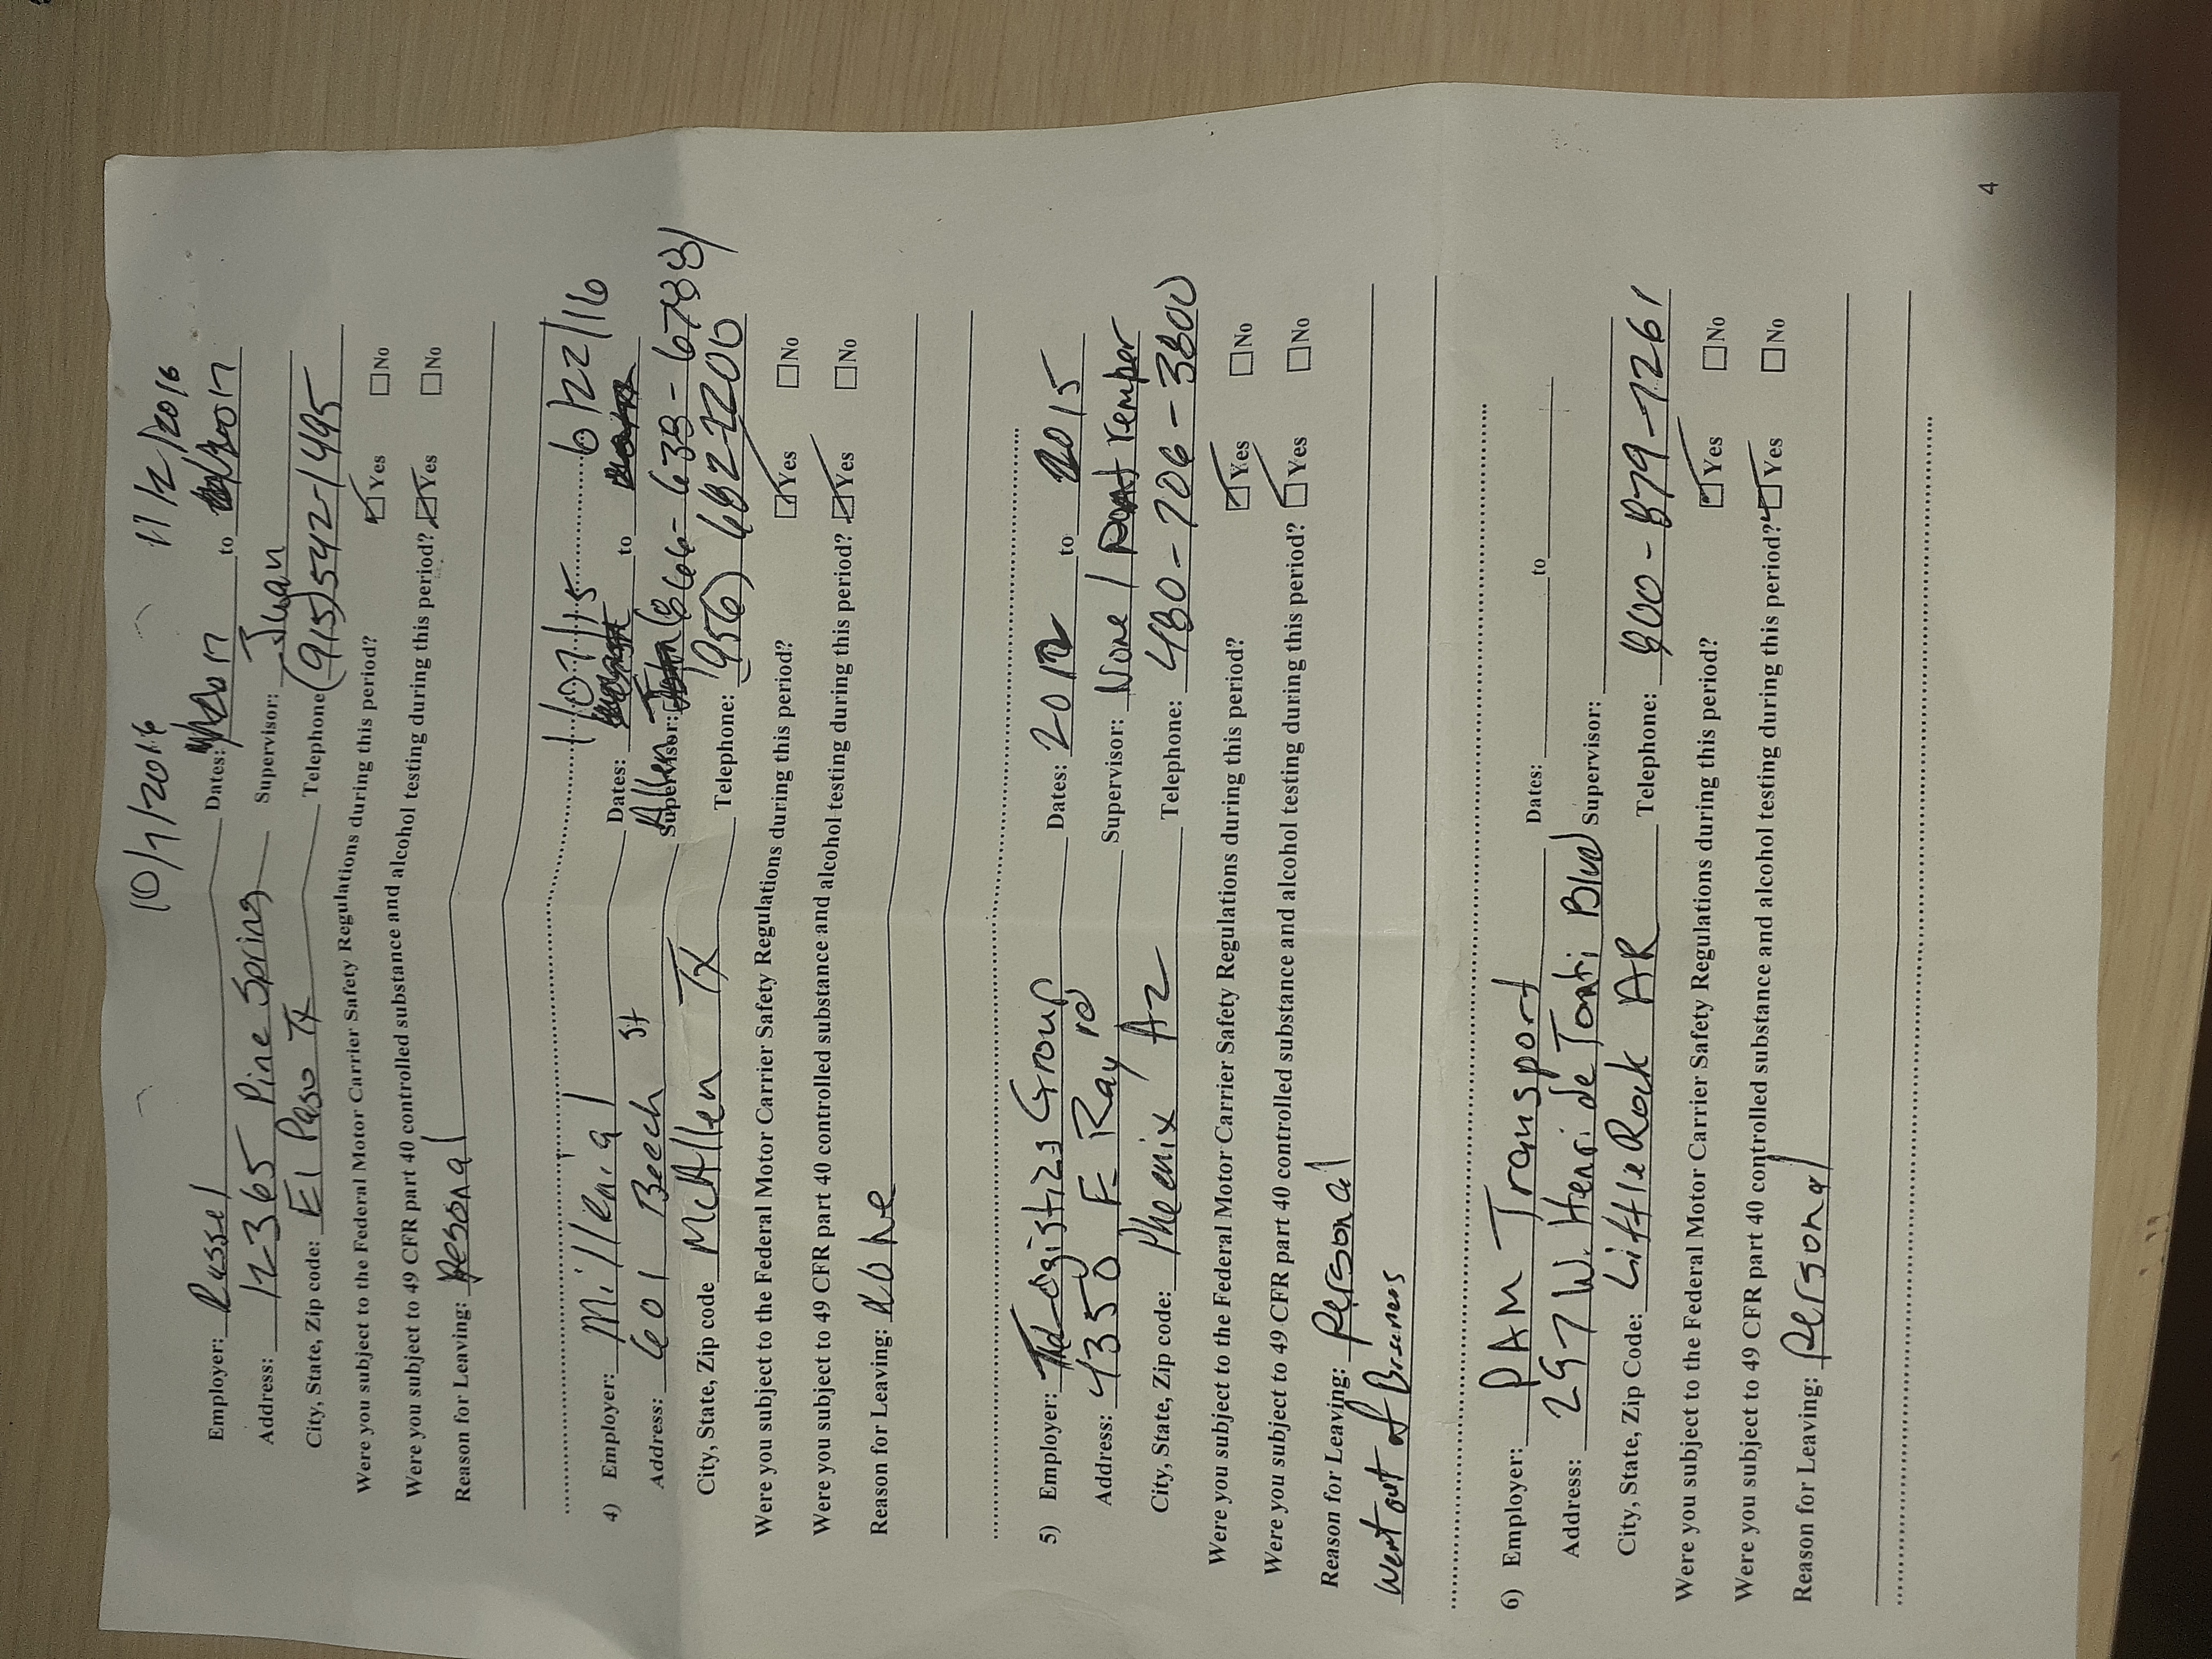 10/1/2016 11/2/2016
Employer: Russel Dates: to
Address: 12365 Pine Spring Supervisor: Juan
City, State, Zip code: El Paso TX Telephone (915) 542-1495
Were you subject to the Federal Motor Carrier Safety Regulations during this period? ☑Yes ☐No
Were you subject to 49 CFR part 40 controlled substance and alcohol testing during this period? ☑Yes ☐No
Reason for Leaving: Personal
10-1-15 6/22/16
4) Employer: Millenial Dates: to
Address: 601 Beech St Supervisor: Allen 866-638-6788
City, State, Zip code McAllen TX Telephone: (956) 682-2200
Were you subject to the Federal Motor Carrier Safety Regulations during this period? ☑Yes ☐No
Were you subject to 49 CFR part 40 controlled substance and alcohol testing during this period? ☑Yes ☐No
Reason for Leaving: None
5) Employer: The Logistizs Group Dates: 2012 to 2015
Address: 4350 E Ray rd Supervisor: None / remper
City, State, Zip code: Pheenix Az Telephone: 480-706-3800
Were you subject to the Federal Motor Carrier Safety Regulations during this period? ☑Yes ☐No
Were you subject to 49 CFR part 40 controlled substance and alcohol testing during this period? ☑Yes ☐No
Reason for Leaving: Personal
Went out of Business
6) Employer: PAM Transport Dates: to
Address: 297 W. Henri de Tonti Blvd Supervisor:
City, State, Zip Code: Little Rock AR Telephone: 800-879-7261
Were you subject to the Federal Motor Carrier Safety Regulations during this period? ☑Yes ☐No
Were you subject to 49 CFR part 40 controlled substance and alcohol testing during this period? ☑Yes ☐No
Reason for Leaving: Personal
4